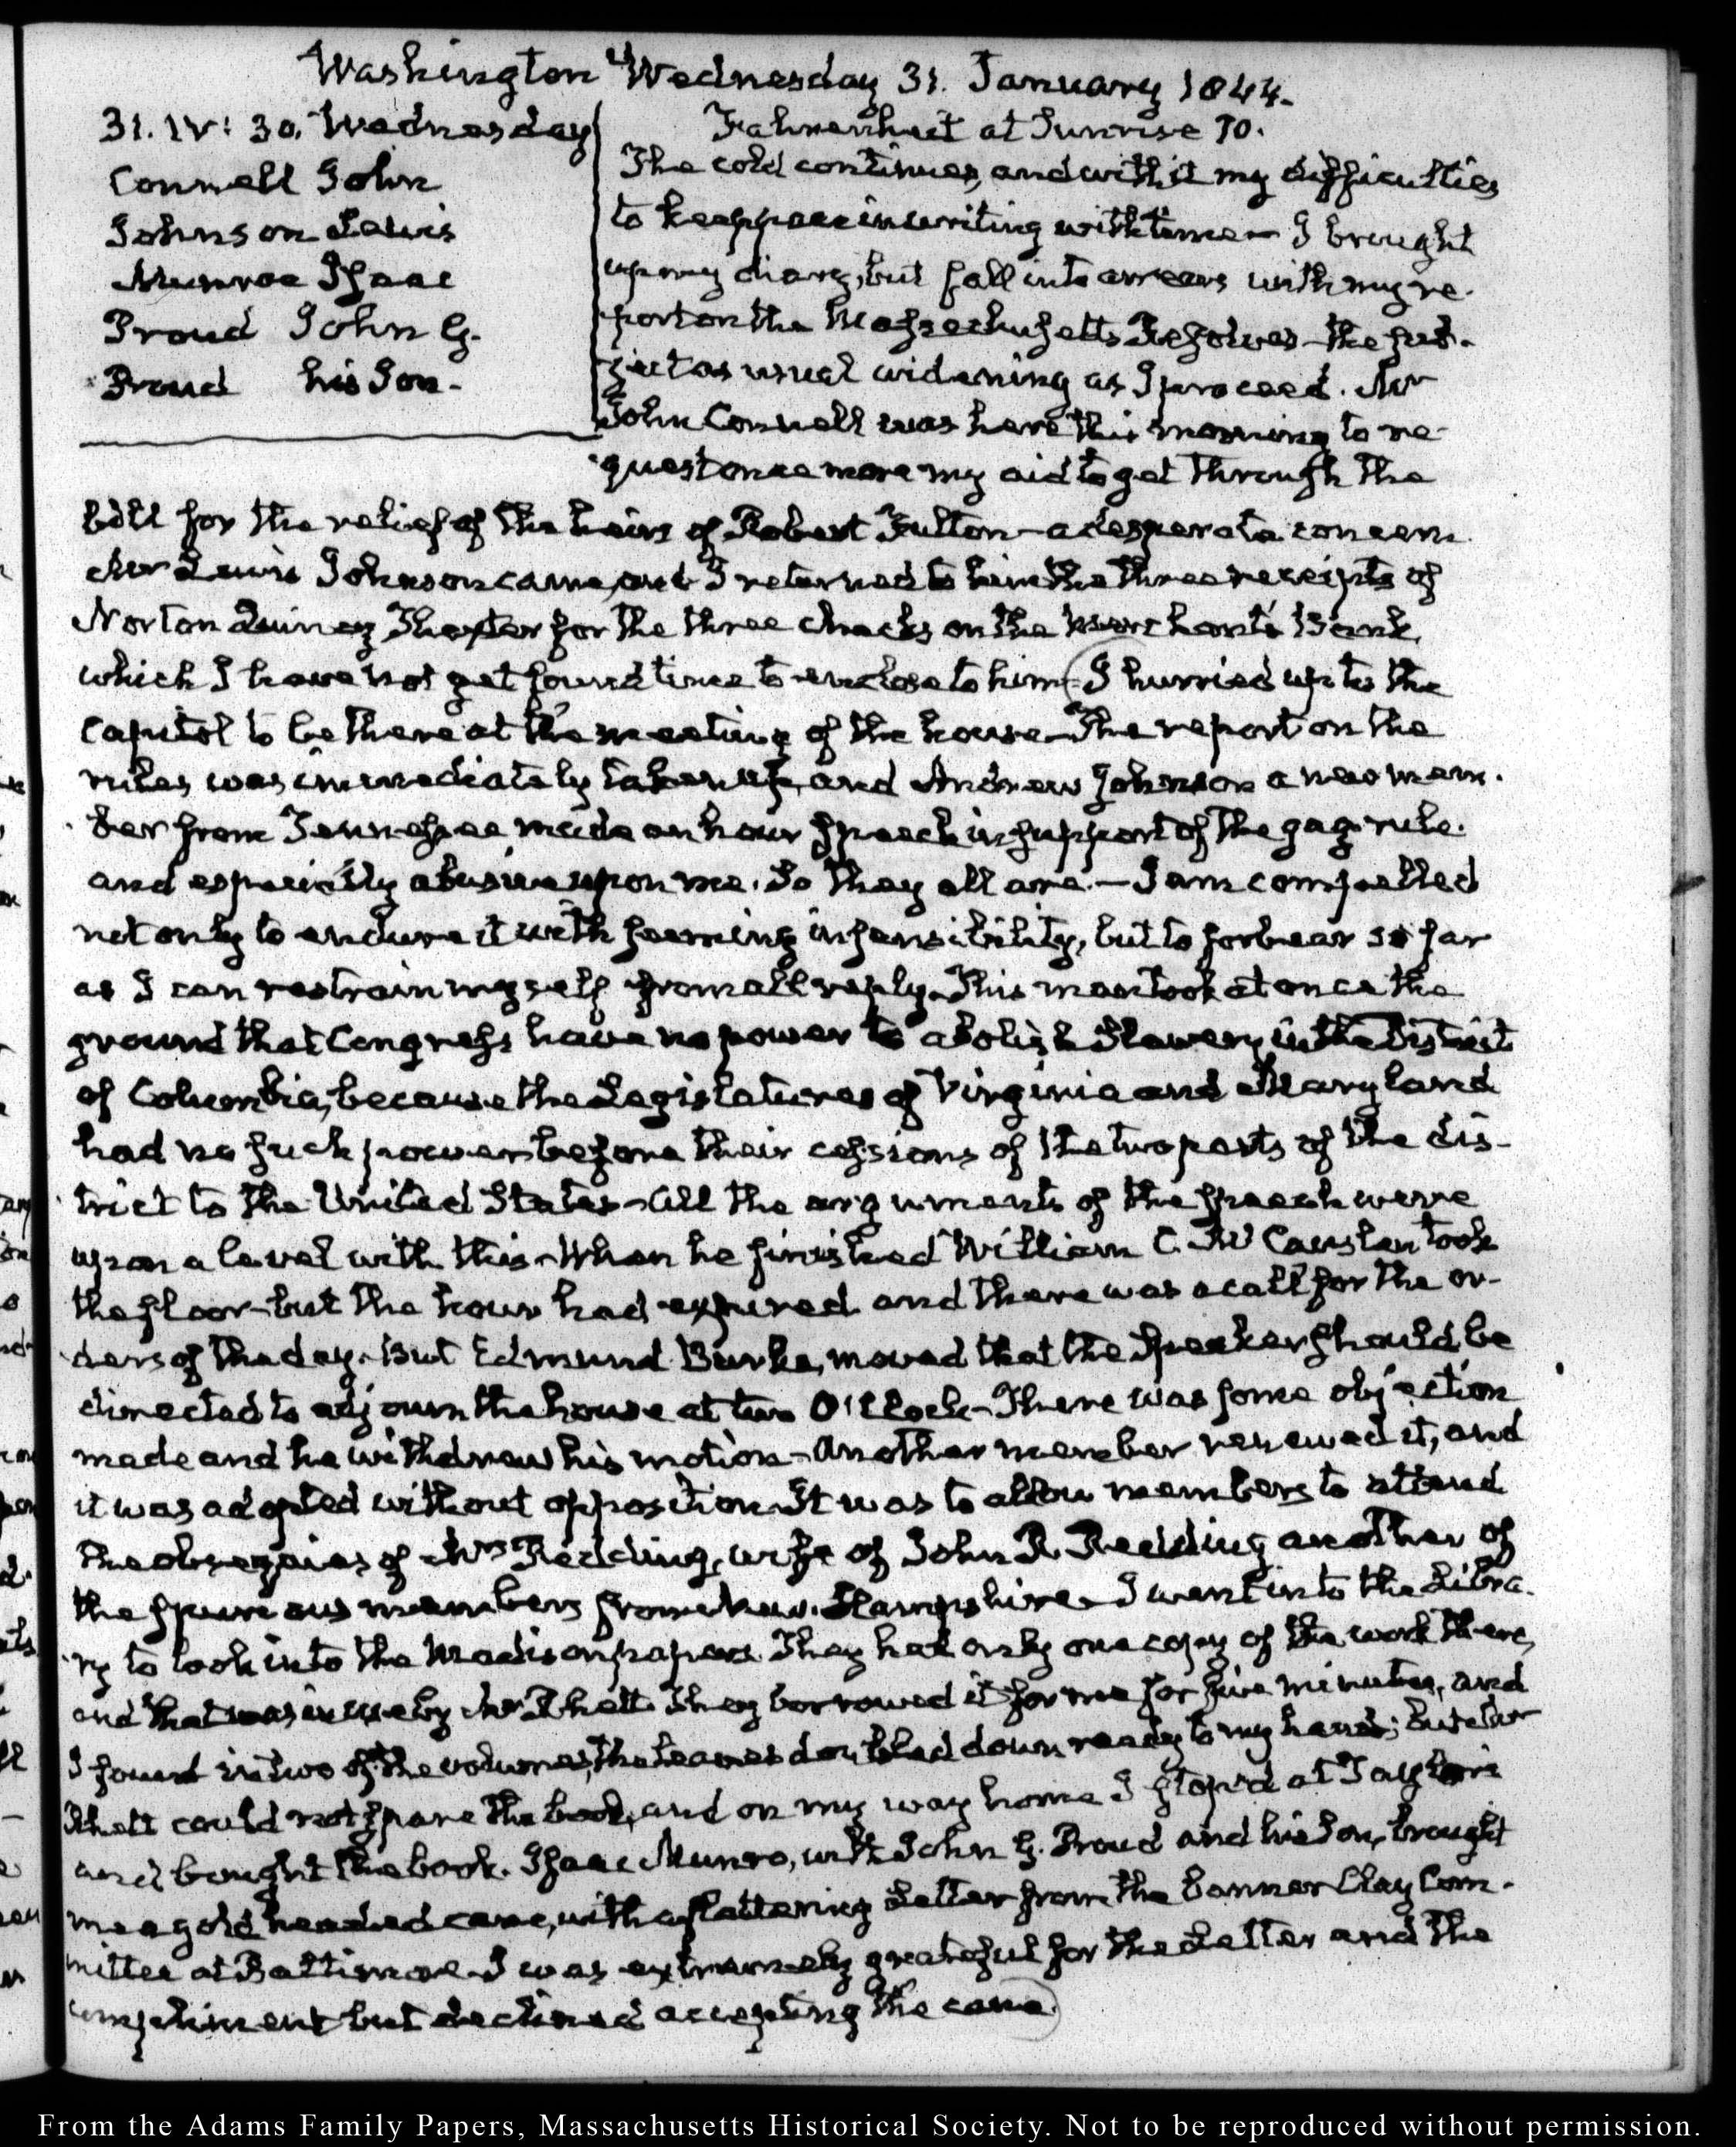 Washington Wednesday 31. January 1844.
31. IV: 30. Wednesday
Connell John
Johnson Lewis
Munroe Isaac
Proud John G.
Proud his Son.
Fahrenheit at Sunrise 10.
The cold continues, and with it my difficulties
to keep pace in writing with time — I brought
up my diary, but fall into arrears with my re-
port on the Massachusetts Resolves — the sub-
ject as usual widening as I proceed. Mr
John Connell was here this morning to re-
quest once more my aid to get through the
bill for the relief of the heirs of Robert Fulton — a desperate concern.
Mr Lewis Johnson came, and I returned to him the three receipts of
Norton Quincy Thaxter for the three checks on the Merchants' Bank,
which I have not yet found time to enclose to him — (I hurried up to the
Capitol to be there at the meeting of the house — The report on the
rules was immediately taken up, and Andrew Johnson a new mem-
ber from Tennessee made an hour speech in support of the gag-rule.
and especially abusive upon me. So they all are. — I am compelled
not only to endure it with seeming insensibility, but to forbear so far
as I can restrain myself from all reply. This man took at once the
ground that Congress have no power to abolish Slavery in the District
of Columbia, because the Legislatures of Virginia and Maryland
had no such power before their cessions of the two parts of the dis-
trict to the United States — All the arguments of the speech were
upon a level with this — When he finished William C. Mc Causlen took
the floor — but the hour had expired and there was a call for the or-
ders of the day. But Edmund Burke, moved that the Speaker should be
directed to adjourn the house at two O'Clock — There was some objection
made and he withdrew his motion — Another member renewed it, and
it was adopted without opposition. It was to allow members to attend
the obsequies of Mrs Redding, wife of John R. Redding another of
the spurious members from New-Hampshire — I went into the Libra-
ry to look into the Madison papers. They had only one copy of the work there,
and that was in use by Mr Rhett. They borrowed it for me for five minutes, and
I found in two of the volumes, the leaves doubled down ready to my hand; but Mr
Rhett could not spare the book, and on my way home I stop'd at Taylor's
and bought the book. Isaac Munro, with John G. Proud and his Son, brought
me a gold headed cane, with a flattering Letter from the banner Clay Com-
mittee at Baltimore — I was extremely grateful for the Letter and the
compliment but declined accepting the cane.)
From the Adams Family Papers, Massachusetts Historical Society. Not to be reproduced without permission.